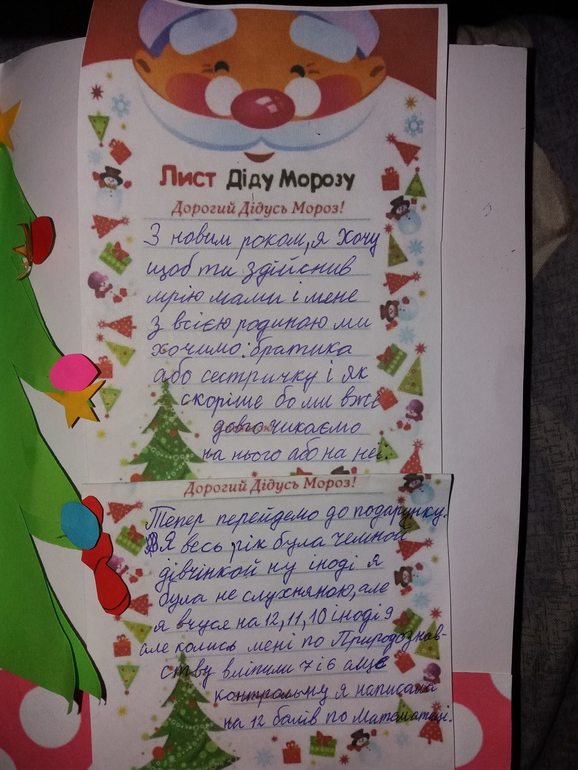 Лист Діду Морозу
Дорогий Дідусь Мороз!
З новим роком, я хочу
щоб ти здійснив
мрію мами і мене
з всією родиною ми
хочимо: братика
або сестричку і як
скоріше бо ми вже
довго чикаємо
на нього або на неї.
Дорогий Дідусь Мороз!
Тепер перейдемо до подарунку.
Я весь рік була чемной
дівчінкой ну іноді я
була не слухняною, але
я вчуся на 12, 11, 10 іноді 9
але колись мені по Природознав-
ству вліпили 7 і 6 а ще
контрольну я написала
на 12 балів по Математиці.